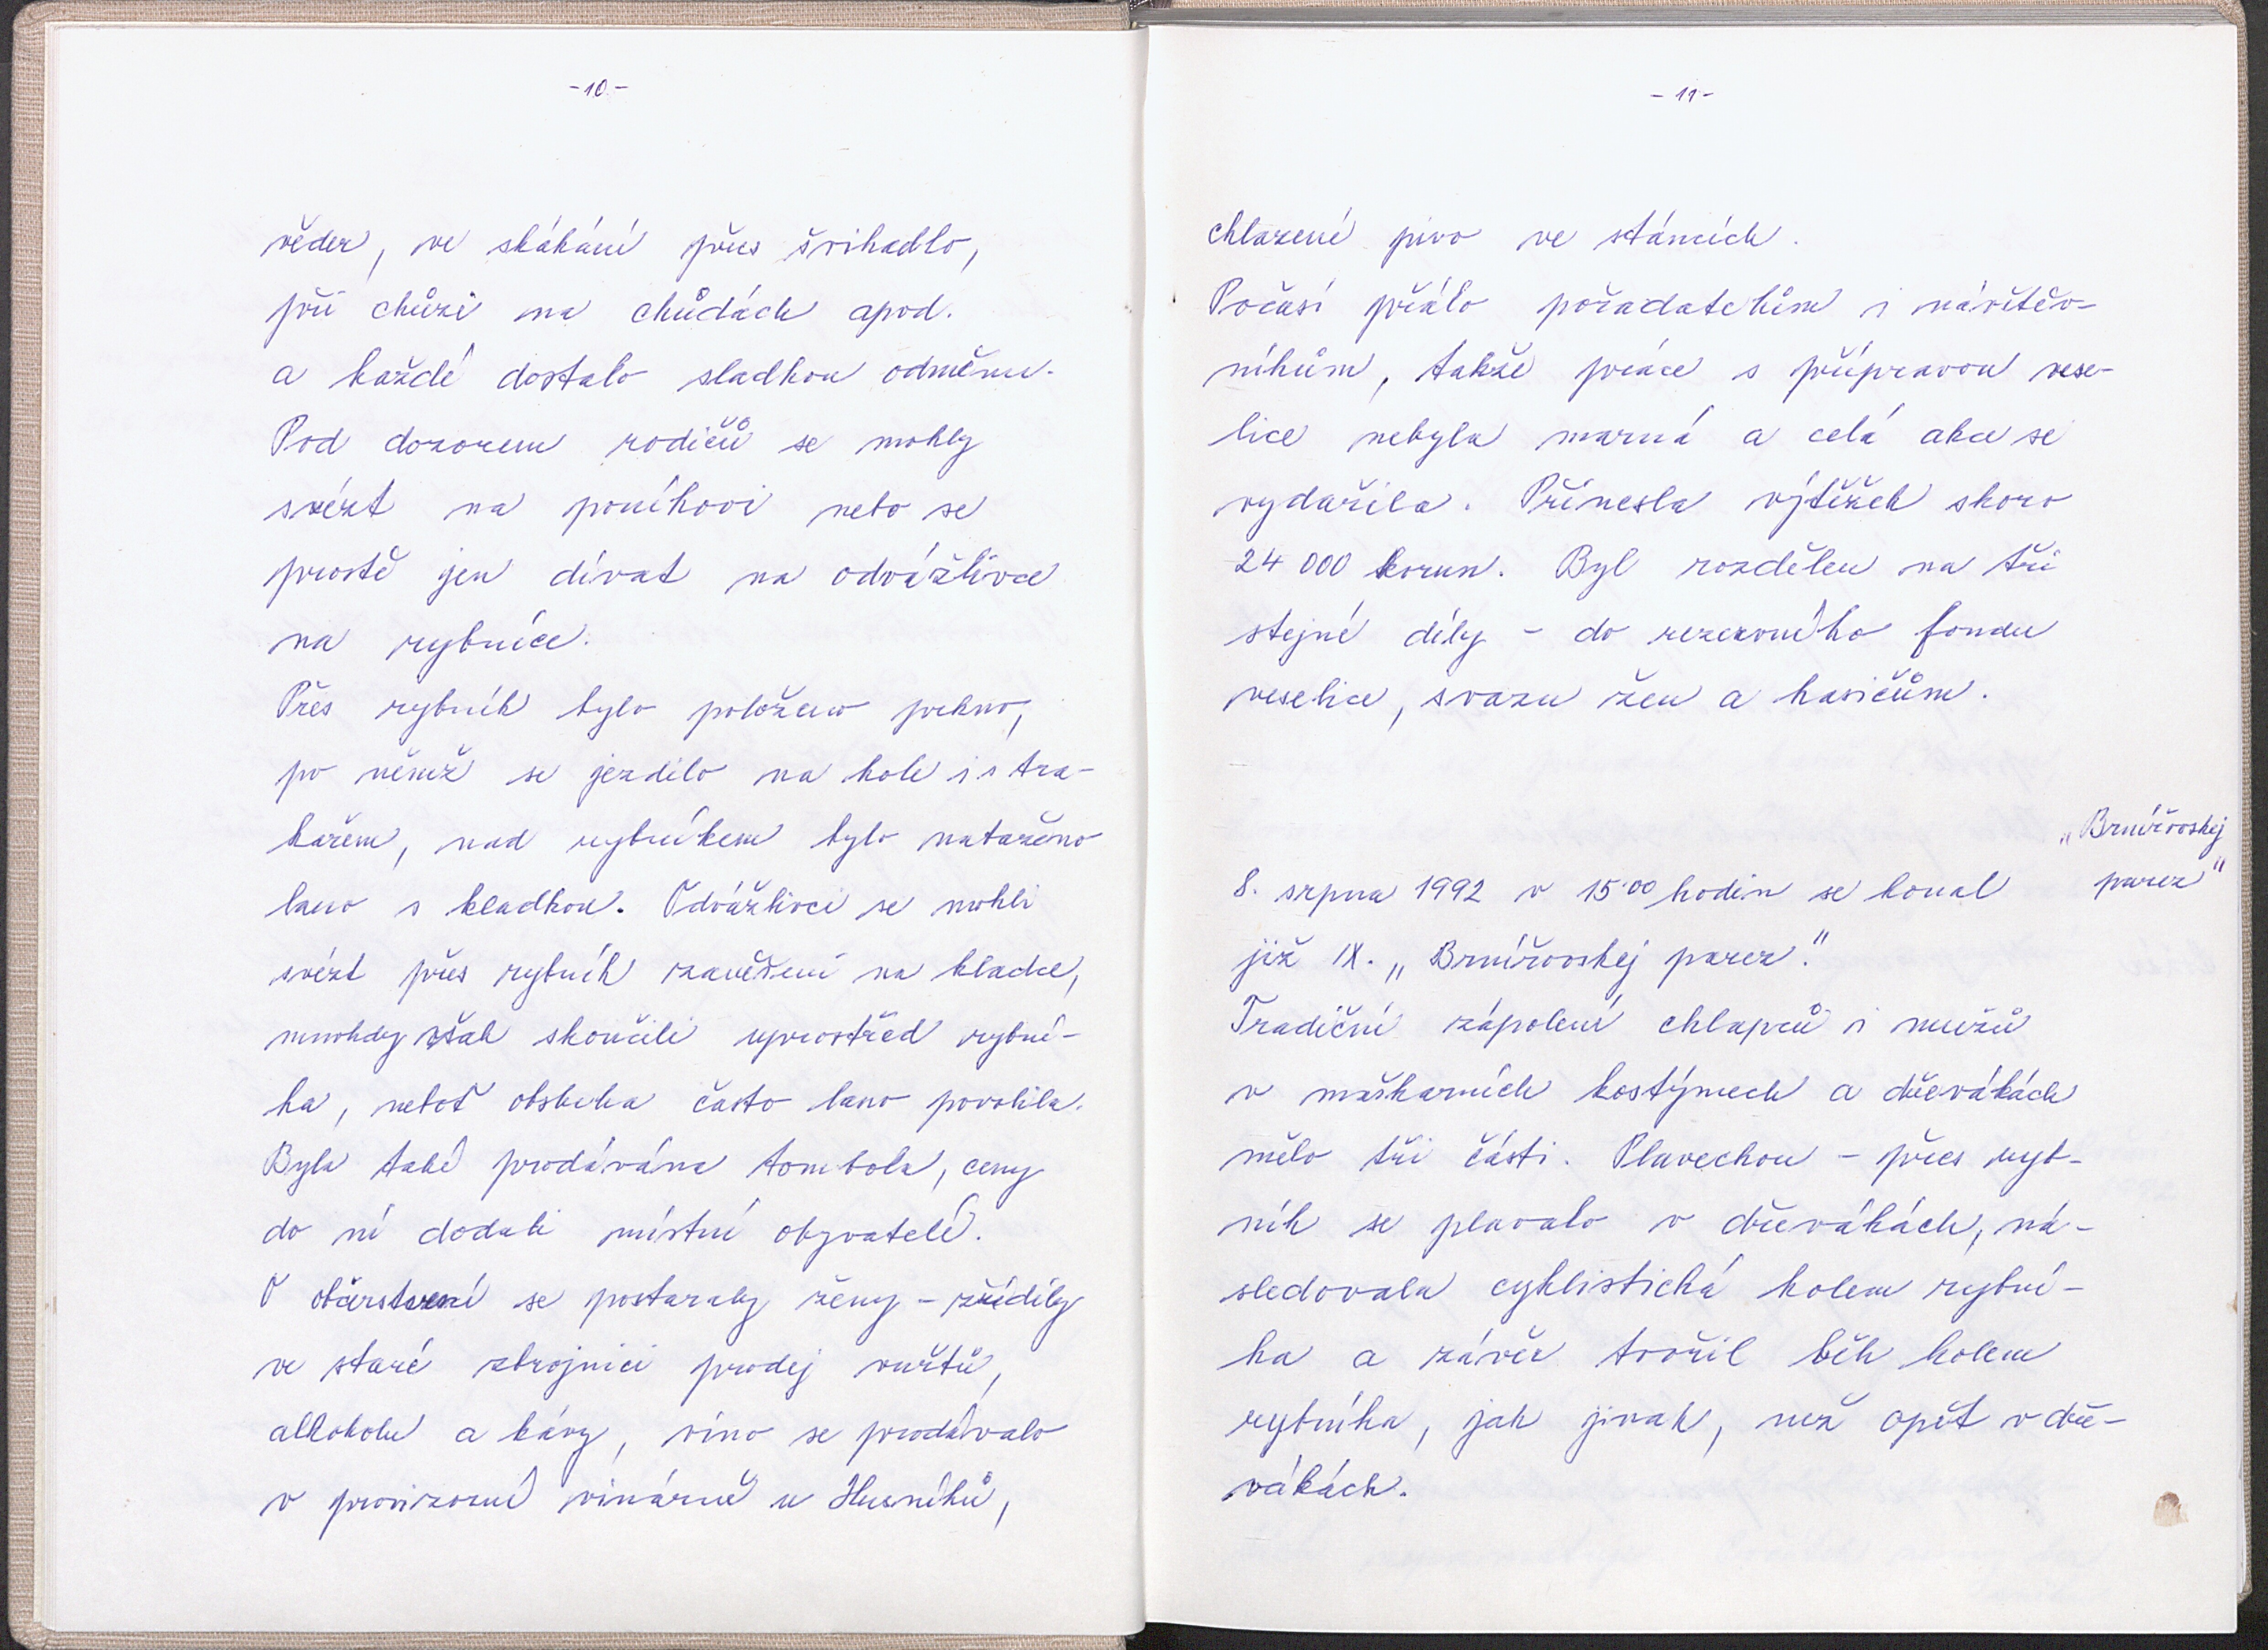 -10-
věder, ve skákání přes švihadlo,
při chůzi na chůdách apod.
a každé dostalo sladkou odměnu.
Pod dozorem rodičů se mohly
svézt na poníkovi nebo se
prostě jen dívat na odvážlivce
na rybníce.
Přes rybník bylo položeno prkno,
po němž se jezdilo na kole i s tra-
kařem, nad rybníkem bylo nataženo
lano s kladkou. Odvážlivci se mohli
svézt přes rybník zavěšeni na kladce,
mnohdy však skončili uprostřed rybní-
ka, neboť obsluha často lano povolila.
Byla také prodávána tombola, ceny
do ní dodali místní obyvatelé.
O občerstvení se postaraly ženy - zřídily
ve staré zbrojnici prodej vuřtů,
alkoholu a kávy, víno se prodávalo
v provizorní vinárně u Husníků,
-11-
chlazené pivo ve stáncích.
Počasí přálo pořadatelům i návštěv-
níkům, takže práce s přípravou vese-
lice nebyla marná a celá akce se
vydařila. Přinesla výtěžek skoro
24 000 korun. Byl rozdělen na tři
stejné díly - do rezervního fondu
veselice, svazu žen a hasičům.
„Brnířovskej
parez"
8. srpna 1992 v 15⁰⁰ hodin se konal
již IX. „Brnířovskej parez."
Tradiční zápolení chlapců i mužů
v maškarních kostýmech a dřevákách
mělo tři části. Plaveckou - přes ryb-
ník se plavalo v dřevákách, ná-
sledovala cyklistická kolem rybní-
ka a závěr tvořil běh kolem
rybníka, jak jinak, než opět v dře-
vákách.